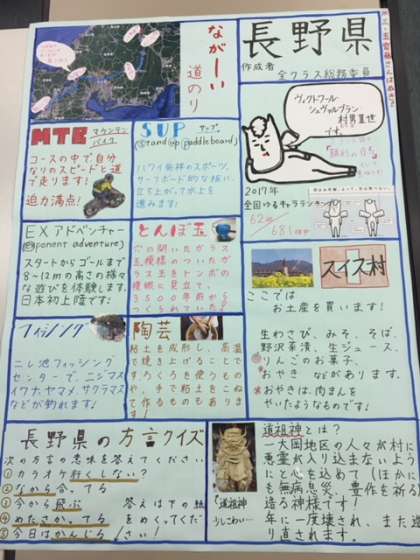 長野県
作成者
全クラス総務委員
ながーい
道のり
ヴィクトワール
シュヴァルブラン
村男Ⅲ世
です
2017年
全国ゆるキャラランキング
62位
681位中
MTB マウンテン
バイク
コースの中で自分
なりのスピードと道
で走ります!
迫力満点!
SUP サップ
(Stand up puddleboard)
ハワイ発祥のスポーツ。
サーフボード的な板に
立ち上がって水上を
進みます!
EXアドベンチャー
(exponent adventure)
スタートからゴールまで
8~12mの高さの様々
な遊びを体験します。
日本初上陸です!
とんぼ玉
穴の開いたガラス
玉。模様のついたガ
ラス玉をトンボの
複眼に見立て、
3500年前から
つくられていた!
スイス村
ここでは
お土産を買います!
生わさび、みそ、そば、
野沢菜漬、生ジュース、
りんごのお菓子、
おやき などがあります。
おやきは、肉まんを
やいたようなものです!
フィッシング
ニレ池フィッシング
センターで ニジマス
イワナ、ヤマメ、サクラマス
などが釣れます!
陶芸
粘土を成形し、高温
で焼き上げることで
す。ろくろを使うもの
や、手で粘土をこね
て作るものもありま
す!
長野県の方言クイズ
次の方言の意味を答えてください
①カラオケ行くしない?
②なから合ってる
③今から飛ぶ
④めたさかってる
⑤今日はかんじる
答えは下の紙
をめくってくだ
さい!
道祖神
うしさわい…
道祖神とは?
大岡地区の人々が村に
悪霊が入り込まないよう
にと心を込めて(ほかに
も無病息災、豊作を祈る)
造る神様です!
年に一度壊され、また造
り直されます。